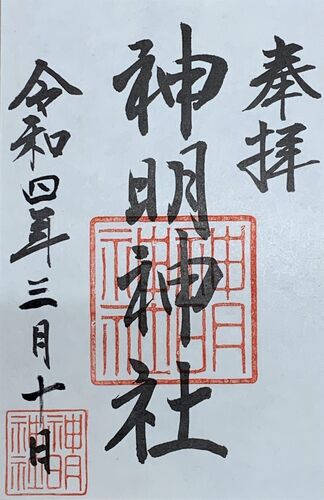 奉拝
神明神社
令和四年三月十日
神明
神社
神明
神社